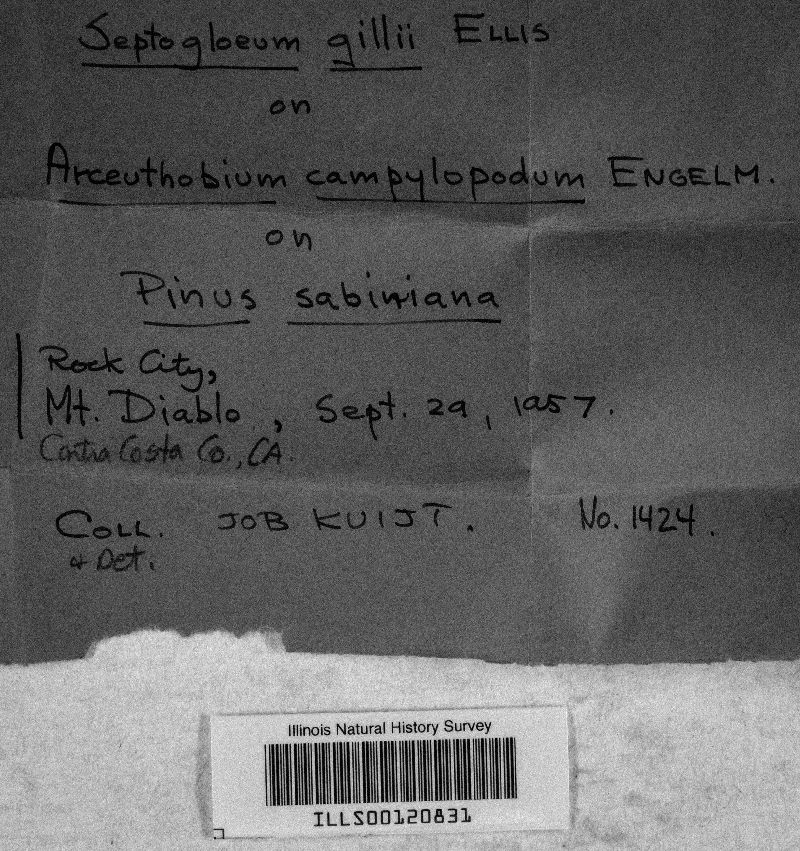 Septogloeum gillii ELLIS
on
Arceuthobium campylopodum ENGELM.
on
Pinus sabiniana
Rock City,
Mt. Diablo, Sept. 29, 1957.
Contra Costa Co., CA.
COLL. JOB KUIJT. No. 1424.
& Det.
Illinois Natural History Survey
ILLS00120831